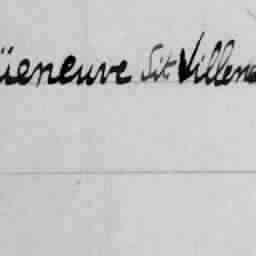 üeneuve Sit Villene